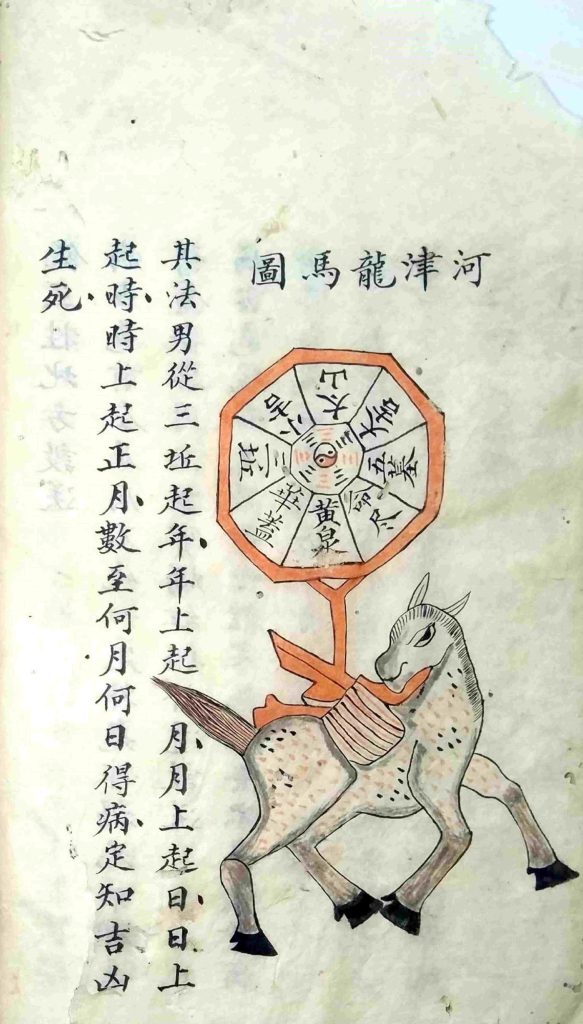 河津龍馬圖
太山
大吉
五墓
命尽
黄泉
華蓋
三坵
小吉
其法男從三坵起年年上起月月上起日日上
起時時上起正月數至何月何日得病定知吉凶
生死